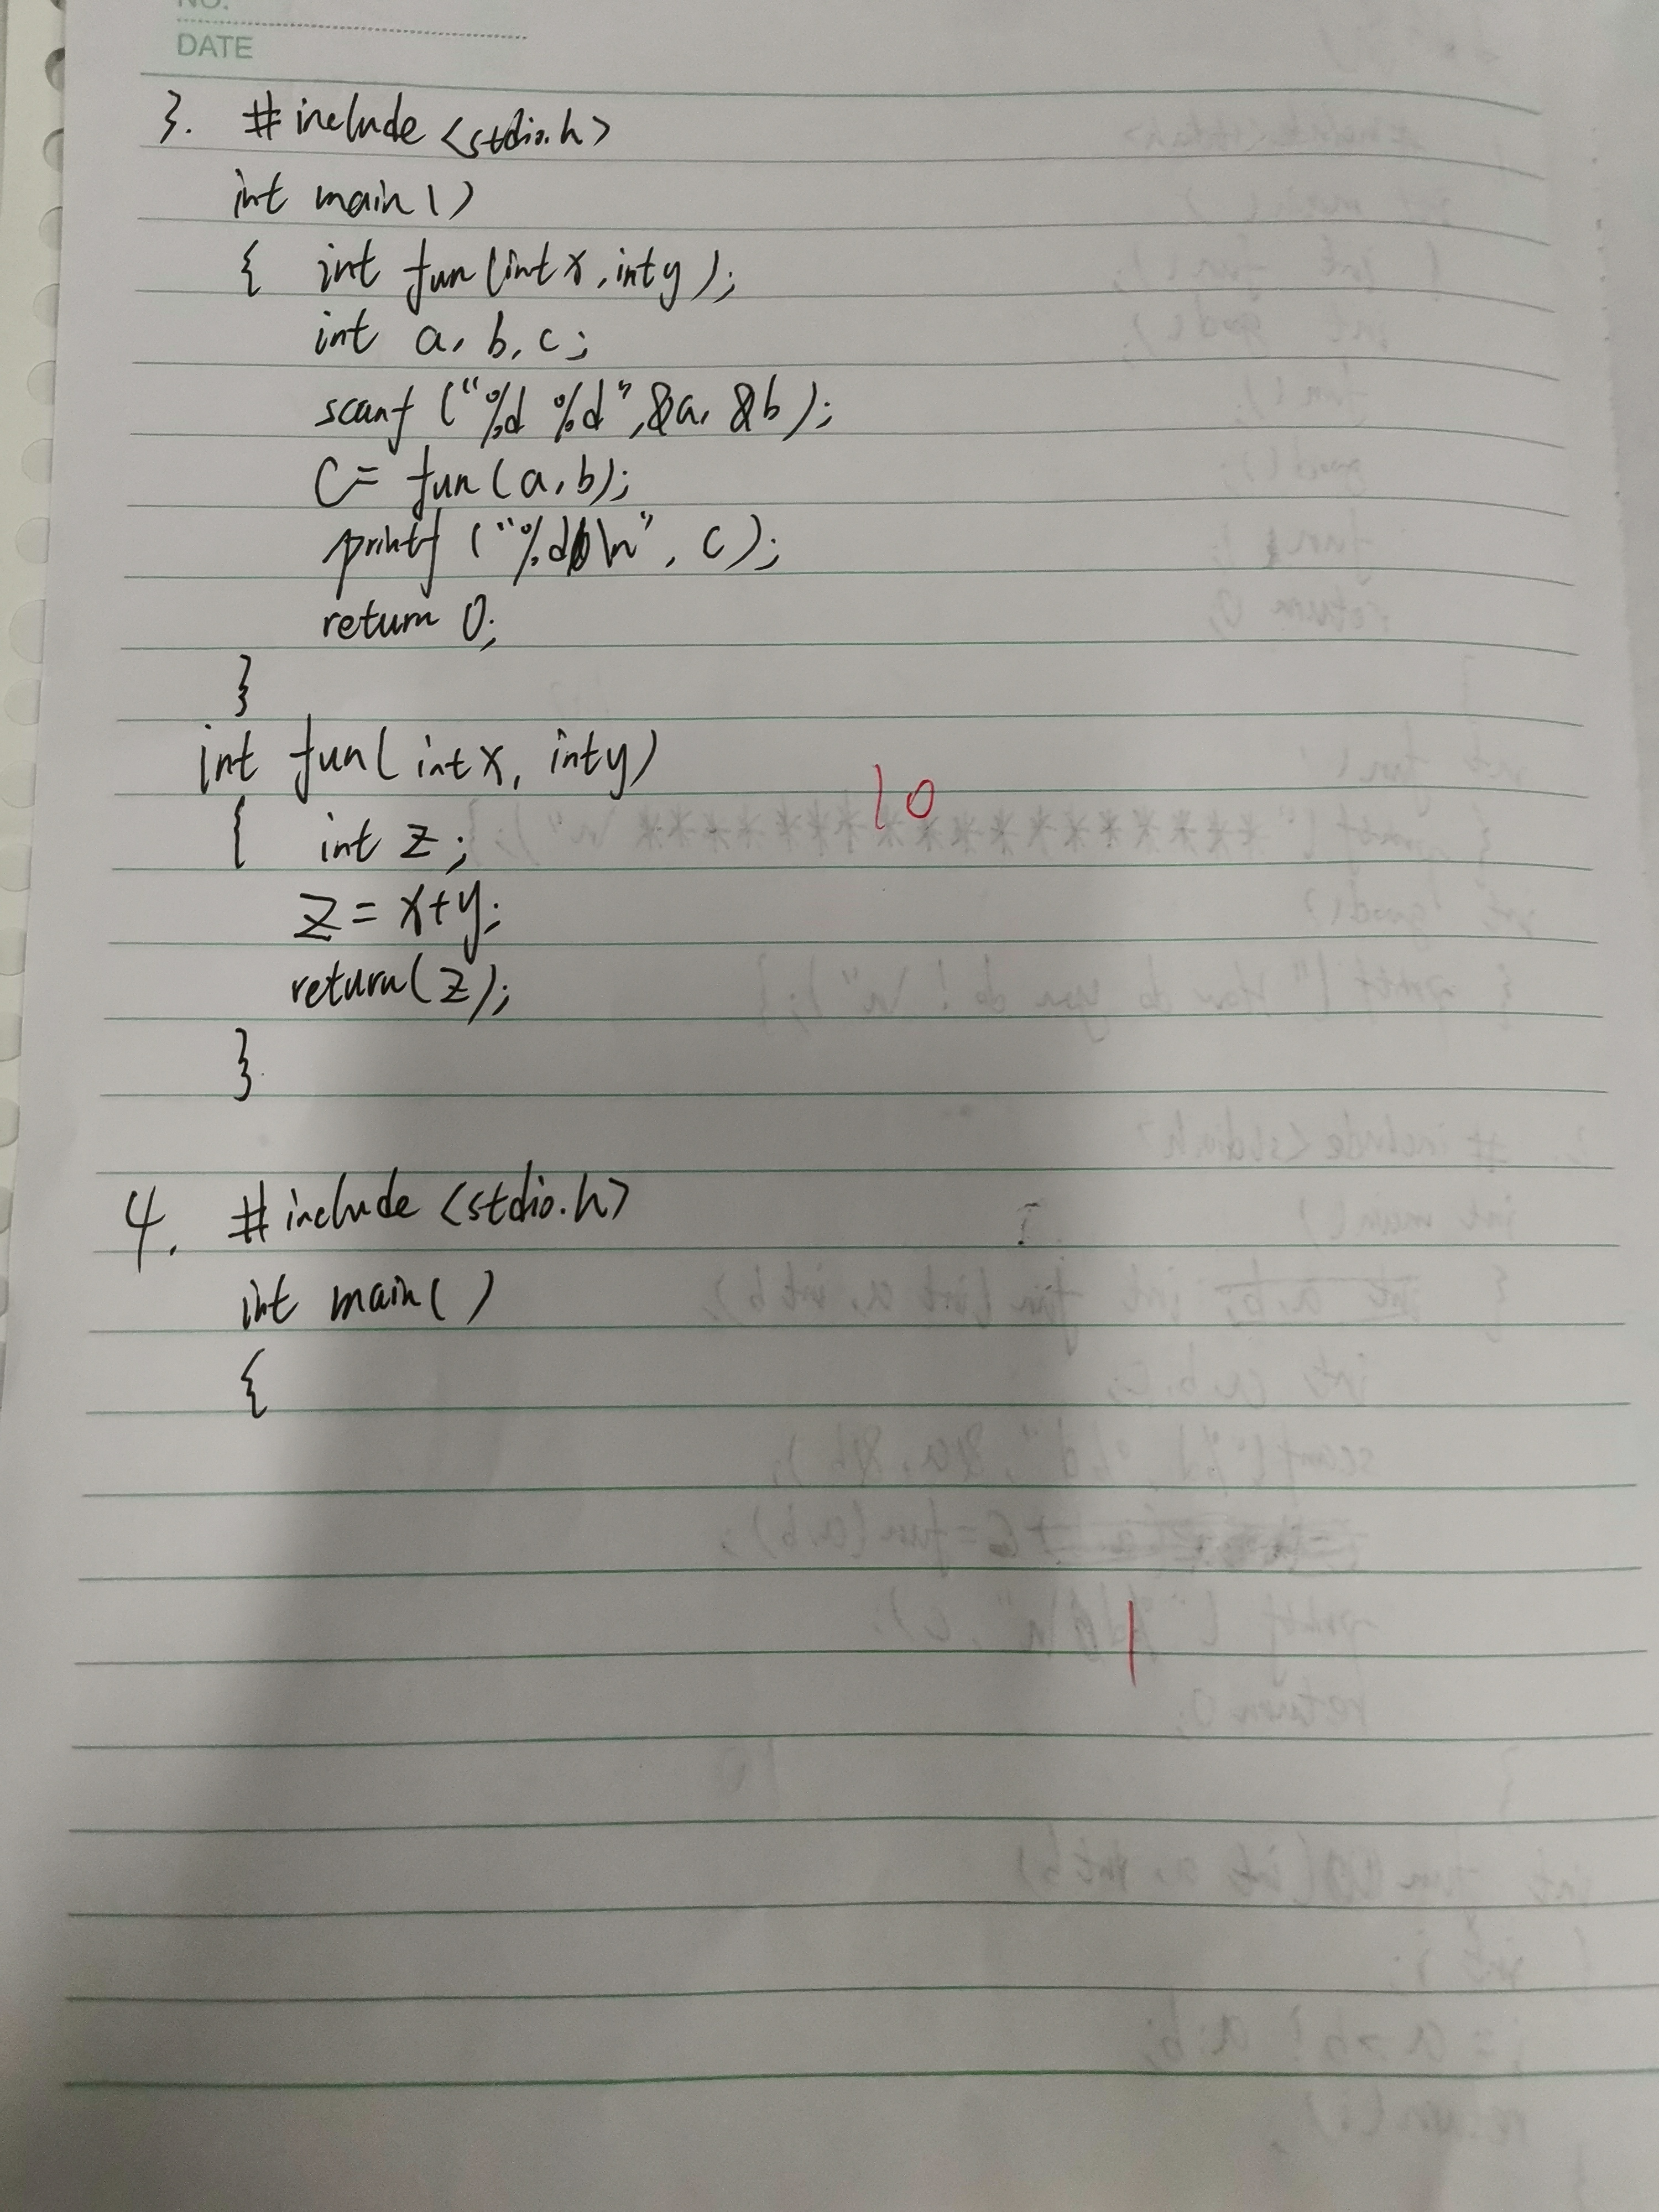 NO.
DATE
3. #include <stdio.h>
int main()
{ int fun(int x, int y);
int a, b, c;
scanf ("%d %d",&a, &b);
C= fun(a,b);
printf ("%d\n", c);
return 0;
}
int fun( int x, int y)
10
{ int z;
z = x+y;
return(z);
}
4. #include <stdio.h>
int main( )
{
1